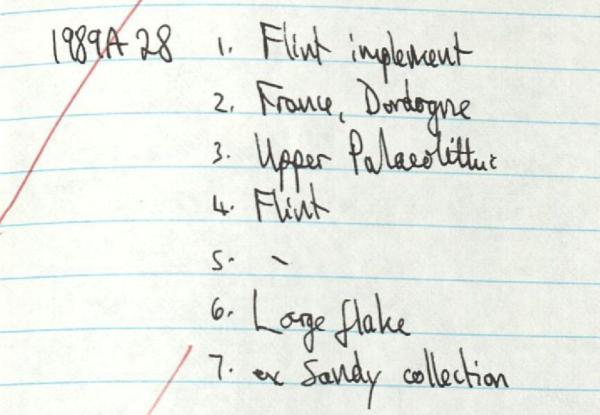 1989A 28 1. Flint implement
2. France, Dordogne
3. Upper Palaeolithic
4. Flint
5. -
6. Large flake
7. ex Sandy collection